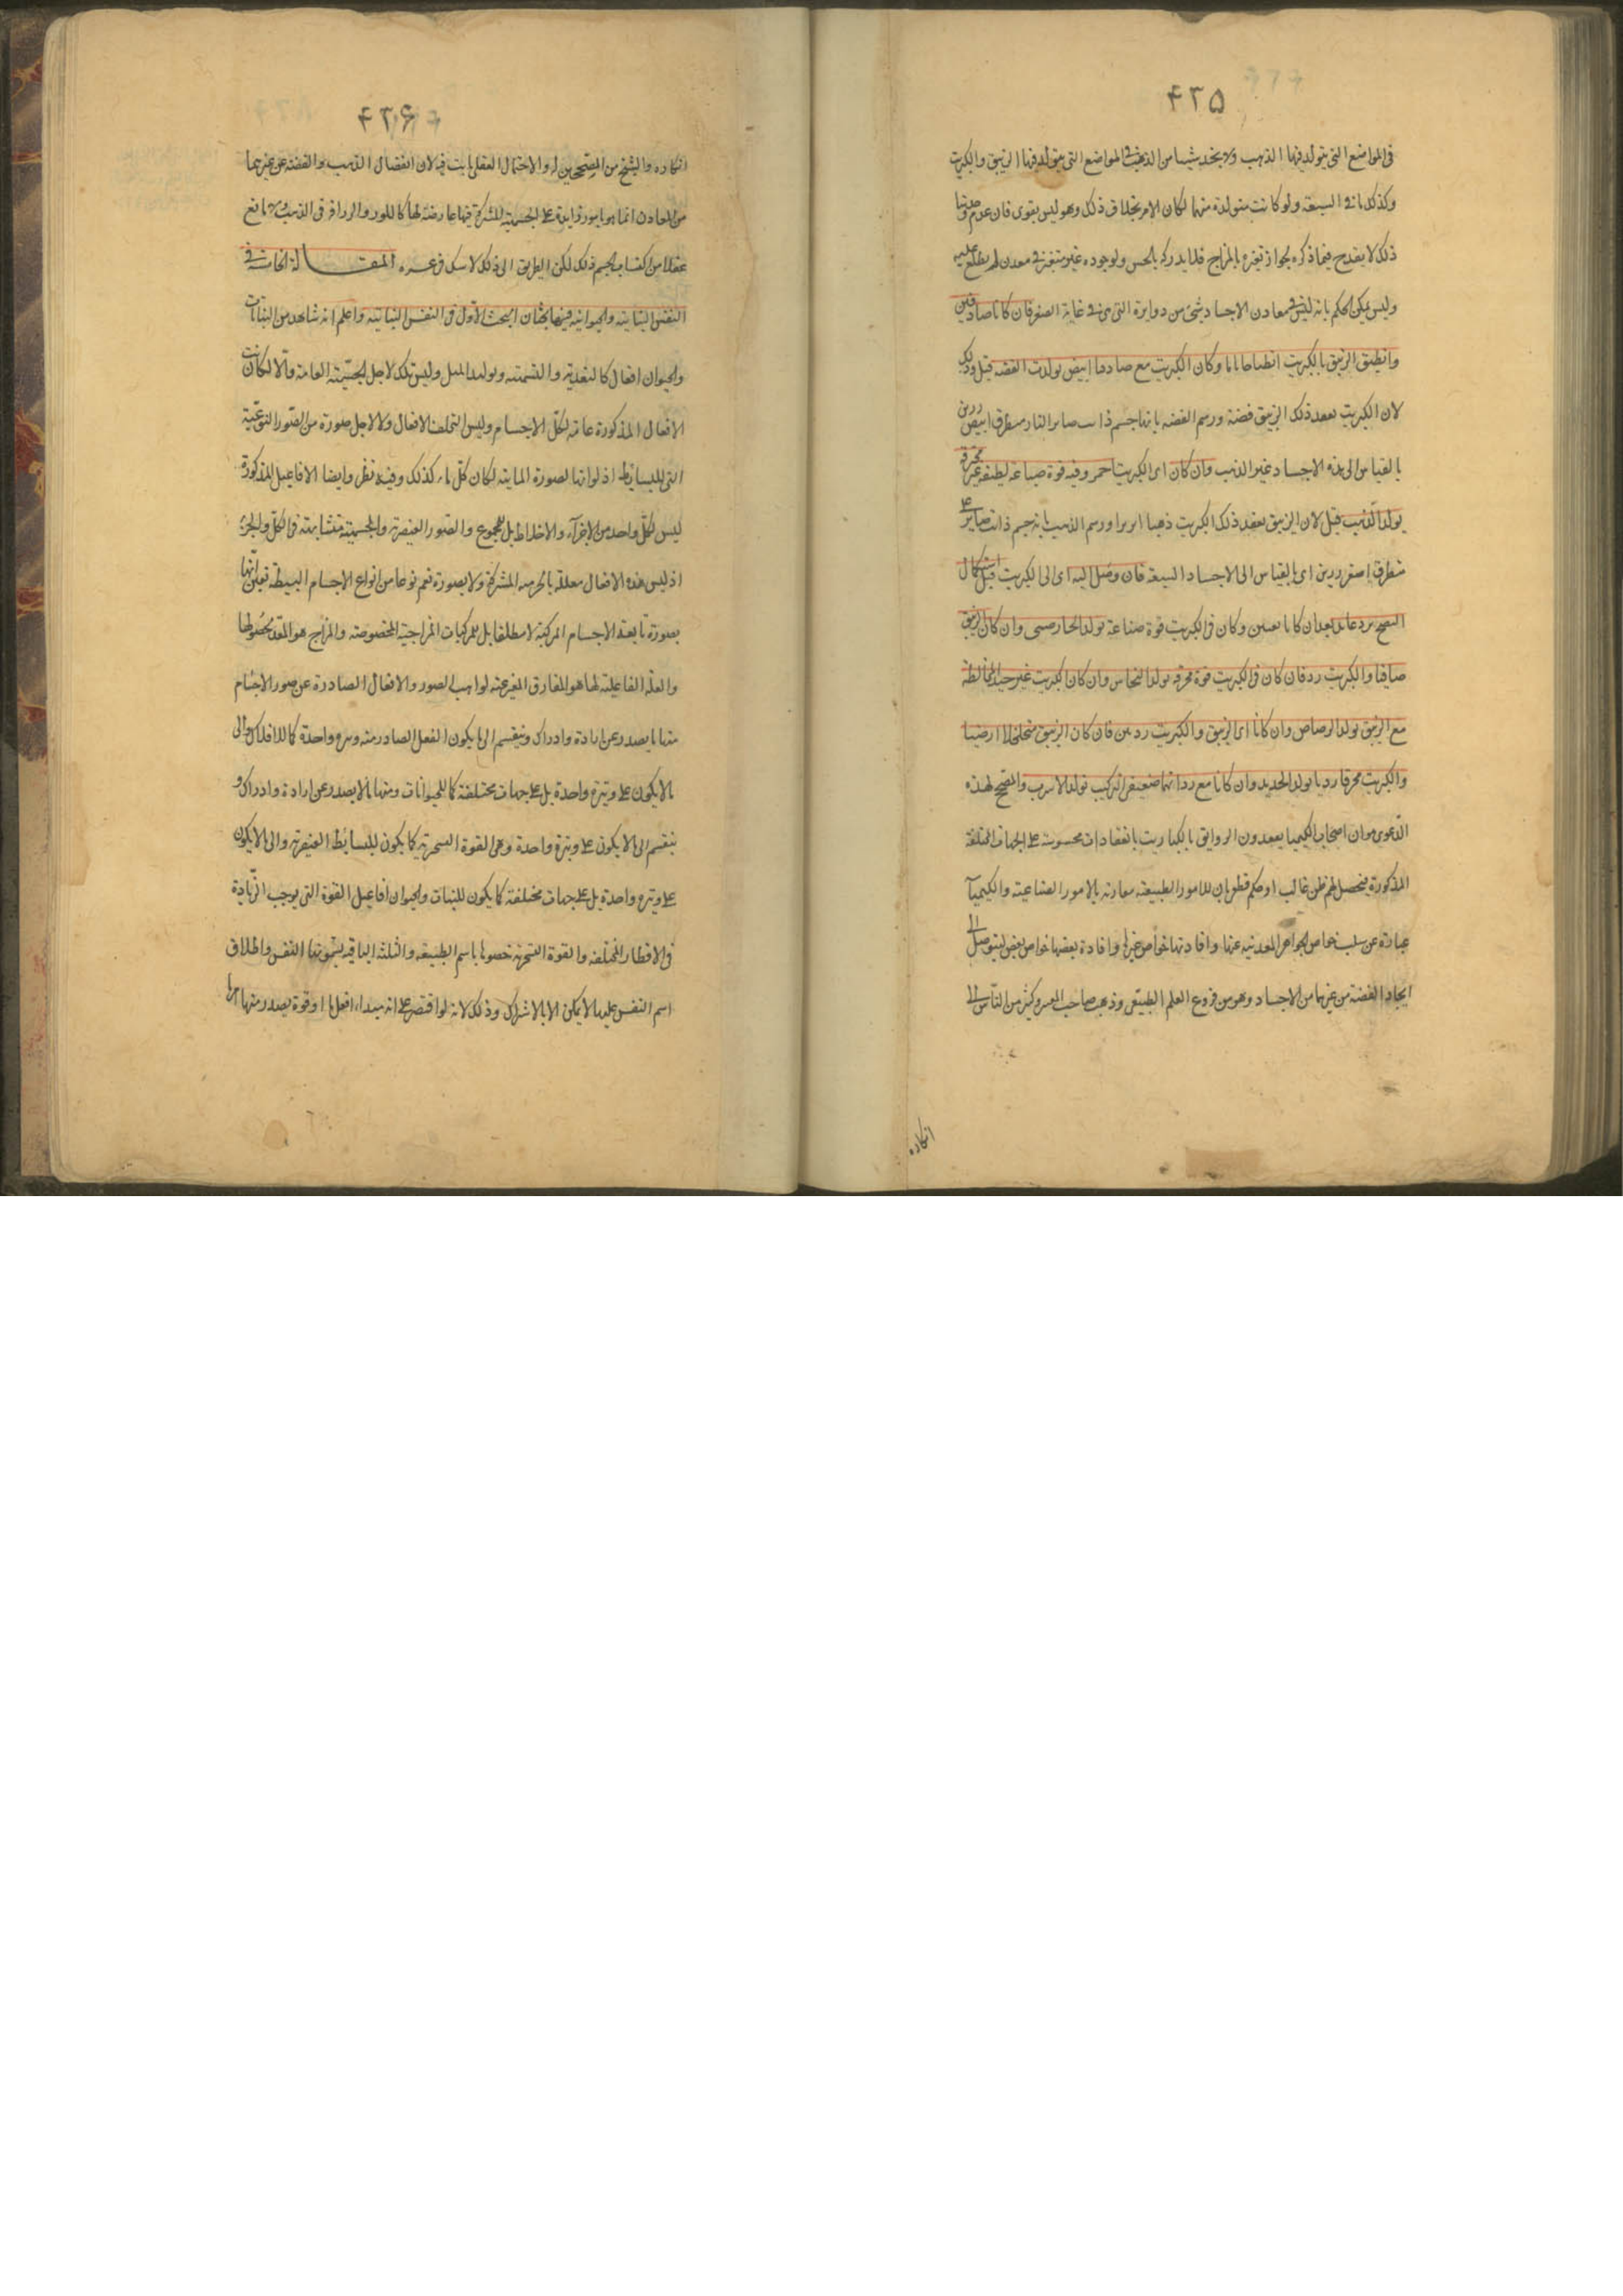 ۴۲۵
فى المواضع التى يتولد فيها الذهب ولا يخد شيئا من الذهب فى المواضع التى يتولد فيها الزيبق والكبريت
وكذلك ما فى السبعة ولو كانت متولدة منهما لكان الامر بخلاف ذلك وهو ليس بقوى فان عدم وجداننا
ذلك لا يقدح فيما ذكره لجواز تغيره بالمزاج فلا يدركه بالحس ولوجوده غير متغير فى معدن لم يطلع عليه
وليس يمكن الحكم بانه ليس فى معادن الاجساد شئ من دوابرة التى هى فى غاية الصغر فان كانا صافيين
وانطبق الزيبق بالكبريت انطباخا تاما وكان الكبريت مع صفائه ابيض تولدت الفضه قيل وذلك
لان الكبريت يعقد ذلك الزيبق فضة ورسم الفضه بانها جسم ذائب صابر النار منطرق ابيض رزين
بالقياس الى هذه الاجساد غير الذهب وان كان اى الكبريت احمر وفيه قوة صباغه لطيفه غير محرقة
تولد الذهب قيل لان الزيبق يعقد ذلك الكبريت ذهبا ابريزا ورسم الذهب بانه جسم ذائب صابر على
منطرق اصفر رزين اى بالقياس الى الاجساد السبعة فان وصل اليه اى الى الكبريت قبل استكمال
النضج برد عاقد بعد ان كانا نقيين وكان فى الكبريت قوة صباغة تولد الخارصينى وان كان الزيبق
صافيا والكبريت رد فان كان فى الكبريت قوة محرقه تولد النحاس وان كان الكبريت غير جيد المخالطة
مع الزيبق تولد الرصاص وان كانا اى الزيبق والكبريت رديين فان كان الزيبق متخلخلا ارضيا
والكبريت محرقا رديا تولد الحديد وان كانا مع رداتهما ضعيفى التركيب تولد الاسرب والمصحح لهذه
الدعوى هو ان اصحاب الكيميا يعقدون الزوابق بالكباريت بانعقادات محسوسة على الجهات المختلفة
المذكورة فيحصل لهم ظن غالب او حكم قطعى بان للامور الطبيعيه مقارنه بالامور الصناعيه والكيمياء
عبارة عن سلب خواص الجواهر المعدنيه عنها وافادتها خواص غيرها وافادة بعضها خواص بعض ليتوصل الى
ايجاد الفضة من غيرها من الاجساد وهو من فروع العلم الطبيعى وذهب صاحب المعتبر وكثير من الناس الى
انكاره
۴۲۶
انكاره والشيخ من المصححين له والاحتمال العقلى ثابت فيه لان انفصال الذهب والفضه عن غيرهما
من المعادن انما هو بامور زايدة على الجسمية المشتركة فيها عارضة لها كاللون والرزانة فى الذهب ولا مانع
عقلا من اكتساب الجسم ذلك لكن الطريق الى ذلك لا شك فى عسره المقالة الخامسة فى
النفس النباتيه والحيوانيه فيها بحثان البحث الاول فى النفس النباتيه واعلم انه شاهد من النبات
والحيوان افعال كالتغذيه والتنميه وتوليد المثل وليس تلك لاجل الجسمية العامة والا لكانت
الافعال المذكورة عامة لكل الاجسام وليس التخلف الافعال ولا لاجل صورة من الصور النوعية
التى للبسايط اذ لو انها لصورة المائيه لكان كل ماء كذلك وفيه نظر وايضا الافاعيل المذكورة
ليس لكل واحد من الاجزاء والاخلاط بل للمجموع والصور العنصرية والجسمية متشابهة فى الكل والجزء
اذ ليس هذه الافعال معللة بالجرميه المشتركة ولا بصورة تعم نوعا من انواع الاجسام البسيطة تعين انها
بصورة تابعة الاجسام المركبة لا مطلقا بل للمركبات المزاجية المخصوصة والمزاج هو المعد لحصولها
والعلة الفاعلية لها هو المفارق المعبر عنه بواهب الصور والافعال الصادرة عن صور الاجسام
منها ما يصدر عن ارادة وادراك وينقسم الى ما يكون الفعل الصادر منه وتيرة واحدة كما للافلاك والى
ما لا يكون على وتيرة واحدة بل على جهات مختلفة كما للحيوانات ومنها ما لا يصدر عن ارادة وادراك و
ينقسم الى ما لا يكون على وتيرة واحدة وهى القوة السخرية كما يكون للبسائط العنصرية والى ما لا يكون
على وتيرة واحدة بل على جهات مختلفة كما يكون للنبات والحيوان افاعيل القوة التى يوجب الزيادة
فى الاقطار المختلفه والقوة السخريه خصوها باسم الطبيعه والثلثة الباقيه يسمونها النفس واطلاق
اسم النفس عليها لا يمكن الا بالاشتراك وذلك لانه لو اقتصر على انه مبداء افعل ما او قوة يصدر منها امر ما